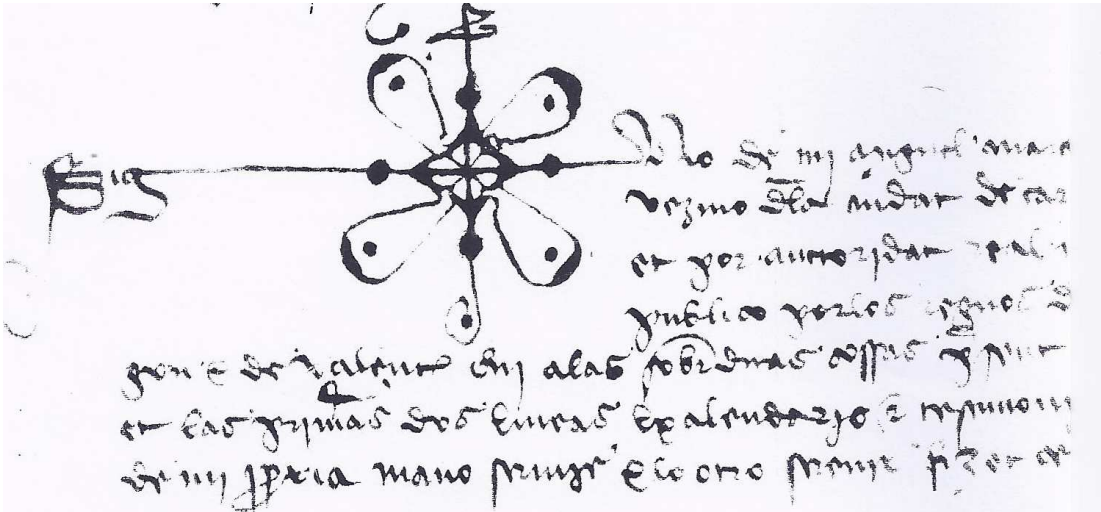 Sig no de mi Miguel
vezino dela ciudat de
et por auctoridat real
publico por los regnos d
gon e de Valent qui a las sobrdítas cosas present
et las primas dos lineas e kalendario e testimoni
de mi ppria mano scriuie e lo otro screuir fiz et ce